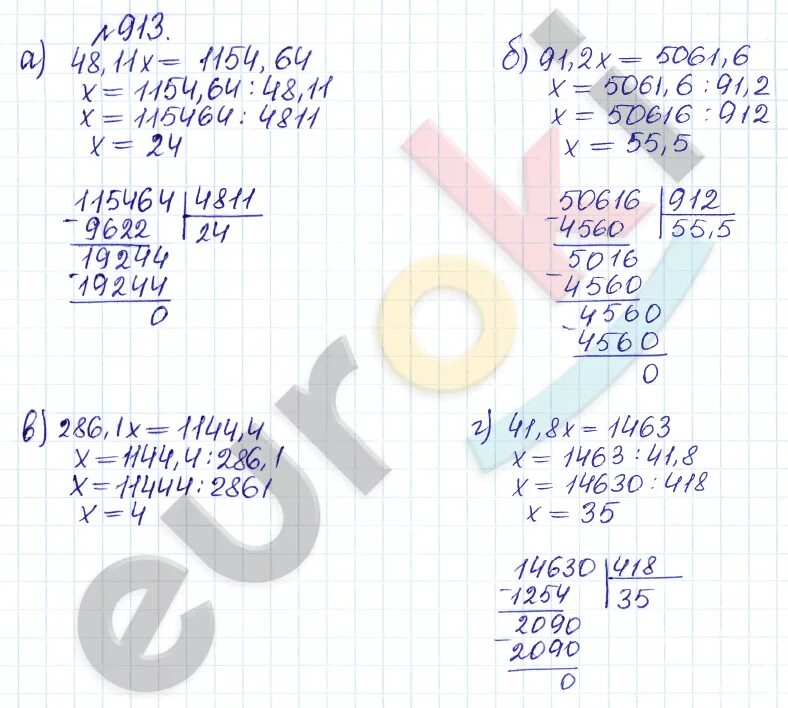 №913.
а) 48,11x = 1154,64
x = 1154,64 : 48,11
x = 115464 : 4811
x = 24
115464 | 4811
- 9622 | 24
19244
- 19244
0
б) 91,2x = 5061,6
x = 5061,6 : 91,2
x = 50616 : 912
x = 55,5
50616 | 912
- 4560 | 55,5
5016
- 4560
4560
- 4560
0
в) 286,1x = 1144,4
x = 1144,4 : 286,1
x = 11444 : 2861
x = 4
г) 41,8x = 1463
x = 1463 : 41,8
x = 14630 : 418
x = 35
14630 | 418
- 1254 | 35
2090
- 2090
0
euroki